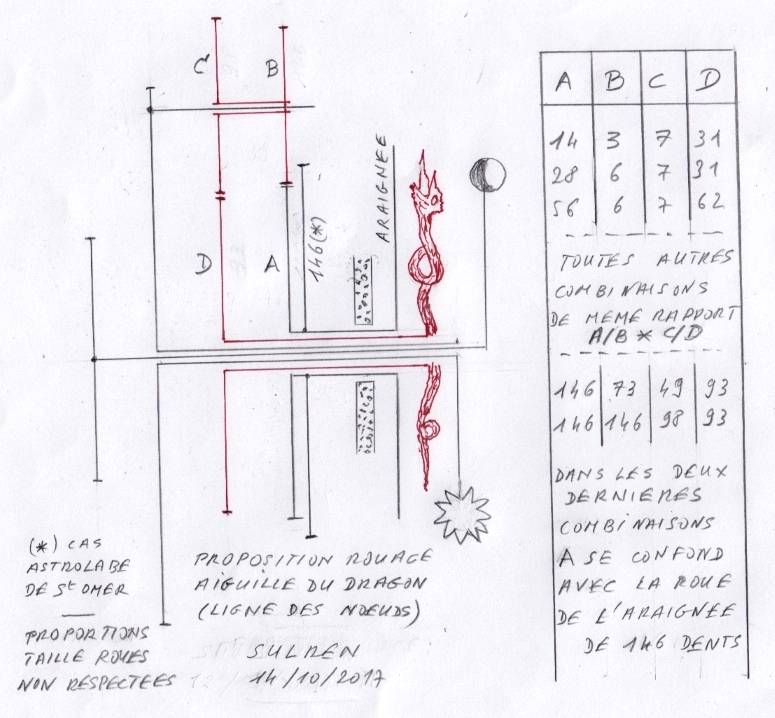 C B
ARAIGNEE
146(*)
D A
(*) CAS
ASTROLABE
DE St OMER
PROPORTIONS
TAILLE ROUES
NON RESPECTEES
PROPOSITION ROUAGE
AIGUILLE DU DRAGON
(LIGNE DES NŒUDS)
SULREN
14/10/2017
A B C D
14 3 7 31
28 6 7 31
56 6 7 62
TOUTES AUTRES
COMBINAISONS
DE MEME RAPPORT
A/B * C/D
146 73 49 93
146 146 98 93
DANS LES DEUX
DERNIERES
COMBINAISONS
A SE CONFOND
AVEC LA ROUE
DE L'ARAIGNEE
DE 146 DENTS